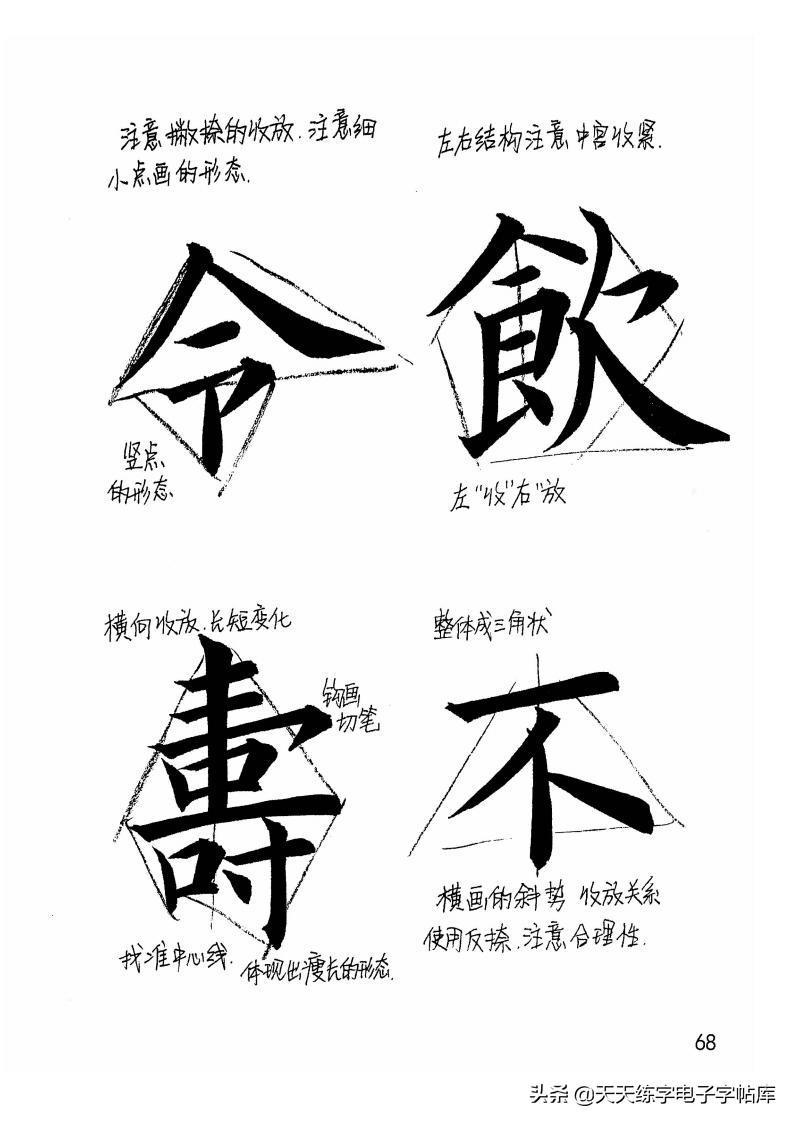 注意撇捺的收放.注意细
小点画的形态.
令
竖点
的形态
左右结构注意中宫收紧.
飲
左“收”右“放
横向收放.长短变化
钩画
切笔
壽
找准中心线.
体现出瘦长的形态.
整体成三角状
不
横画的斜势 收放关系
使用反捺.注意合理性.
68
头条 @天天练字电子字帖库